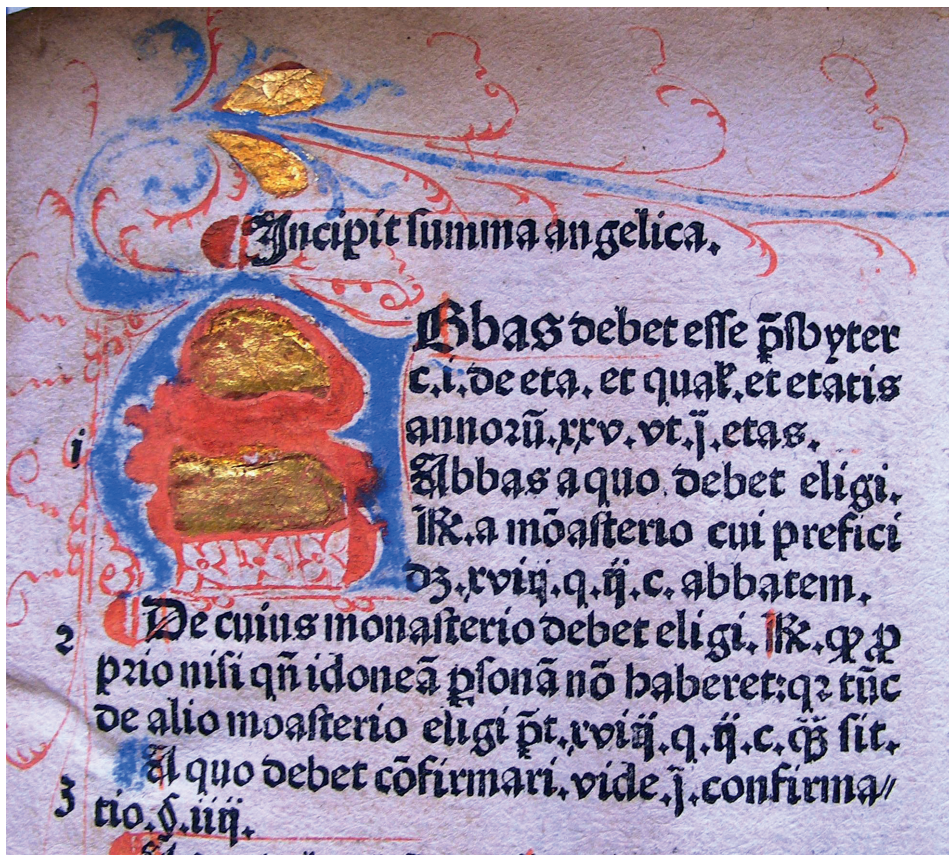 Incipit summa angelica.
ABbas debet esse p̄sbyter
c.i. de eta. et qual. et etatis
annoꝝū.xxv. vt.j̄. etas.
i
Abbas a quo debet eligi.
℞. a mōasterio cui prefici
dꝫ.xviij.q.ij.c. abbatem.
2
De cuius monasterio debet eligi. ℞. ꝙ ꝓ
prio nisi qn̄ idoneā ꝑsonā nō haberet: qꝛ tūc
de alio moasterio eligi p̄t.xviij.q.ij.c. sit.
3
A quo debet cōfirmari. vide.j̄. confirma//
tio.§.iiij.